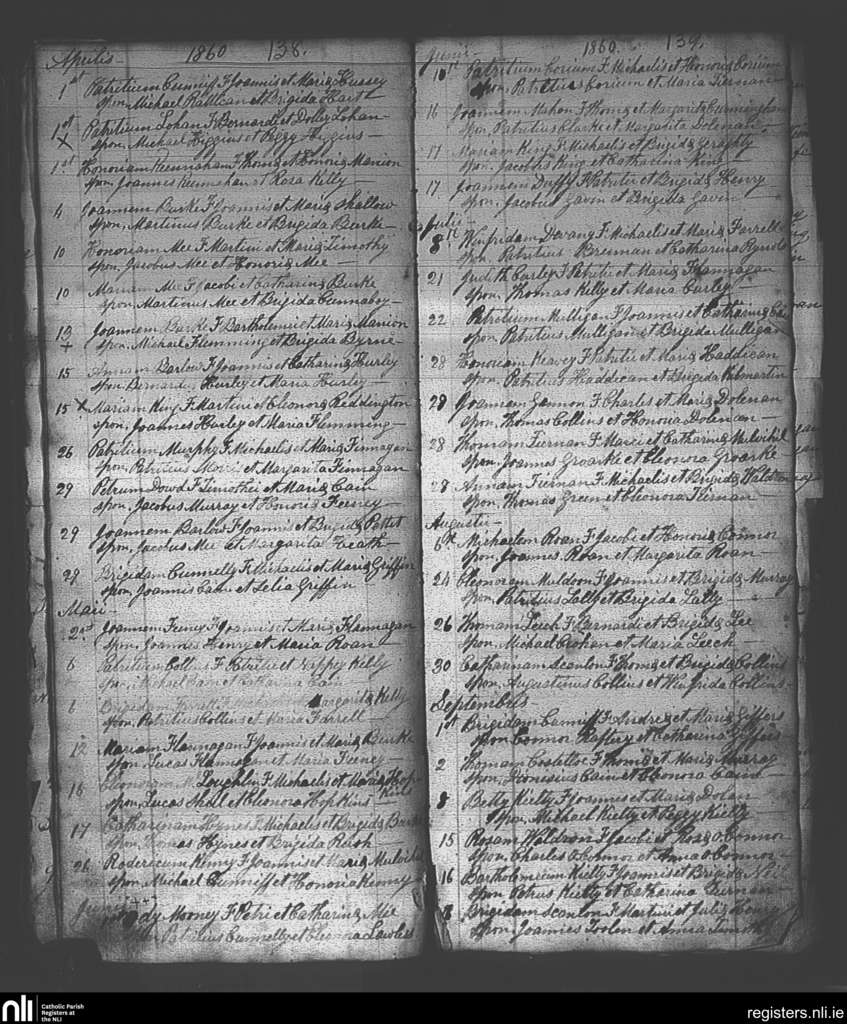 Aprilis 1860 138.
1st Patritium Cunniff F Joannis et Maria Hussey
Spon. Michael Rattican et Brigida Hart
1st Patritium Lohan F Bernardi et Dolly Lohan
X Spon. Michael Higgins et Peggy Higgins
1st Honoriam Keernahan F Thoma et Honoria Manion
Spon. Joannes Keernahan et Rosa Kelly
4 Joannem Burke F Joannis et Maria Shallow
Spon. Martinus Burke et Brigida Burke
10 Honoriam Mee F Martini et Maria Timothy
Spon. Jacobus Mee et Honoria Mee
10 Mariam Mee F Jacobi et Catharina Burke
Spon. Martinus Mee et Brigida Cunnaboy
13 Joannem Burke F Bartholemei et Maria Manion
+ Spon. Michael Flemming et Brigida Byrne
15 Annam Barlow F Joannis et Catharina Hurley
Spon. Bernardus Hurley et Maria Hurley
15 X Mariam King F Martini et Eleonora Reddington
Spon. Joannes Hurley et Maria Flemming
26 Patritium Murphy F Michaelis et Maria Finnagan
Spon. Patritius Morris et Margarita Finnagan
29 Petrum Dowd F Timothei et Maria Cain
Spon. Jacobus Murray et Honoria Feeney
29 Joannem Barlow F Joannis et Brigida
Spon. Jacobus Mee et Margarita Heath
29 Brigidam Cunnelly F Michaelis et Maria Griffin
Spon. Joannis Cain et Lelia Griffin
Maii
2nd Joannem Feeney F Joannis et Maria Flannagan
Spon. Joannes Henry et Maria Roan
6 Patritium Collins F Patritii et Nappy Kelly
Spon. Michael et Catharina Cain
6 Brigidam Farrell F Margarita Kelly
Spon. Patritius Collins et Maria Farrell
12 Mariam Flannagan F Joannis et Maria Burke
Spon. Lucas Flannagan et Maria Feeney
16 Eleonoram McLoughlin F Michaelis et Maria Hopkins
Spon. Lucas et Eleonora Hopkins
17 Catharinam Hynes F Michaelis et Brigida
Spon. Thomas Hynes et Brigida Rush
26 Rodericum Kenny F Joannis et Maria Mulvihil
Spon. Michael Cunniff et Honoria Kenny
Junii
Mooney F Petri et Catharina Mee
Spon. Patritius Cunnelly et Eleonora Lawless
Junii 1860. 139.
10th Patritium Corium F Michaelis et Honoria Corium
Spon. Patritius Corium et Maria Tiernan
16 Joannem Mahon F Thoma et Margarita Cunningham
Spon. Patritius Clarke et Margarita Dolenan
17 Mariam King F Michaelis et Brigida Geraghty
Spon. Jacobus King et Catharina King
17 Joannem Duffy F Patritii et Brigida Henry
Spon. Jacobus Gavin et Brigida Gavin
Julii
8th Winfridam Devany F Michaelis et Maria Farrell
Spon. Patritius Brennan et Catharina
21 Judith Curley F Patritii et Maria Flannagan
Spon. Thomas Kelly et Maria Curley
22 Patritium Mulligan F Joannis et Catharina
Spon. Patritius Mulligan et Brigida Mulligan
28 Honoriam Keavey F Patritii et Maria Haddican
Spon. Patritius Haddican et Brigida Kilmartin
28 Joannem Gannon F Charles et Maria Dolenan
Spon. Thomas Collins et Honoria Dolenan
28 Thomam Tiernan F Marci et Catharina Mulvihil
Spon. Joannes Groarke et Eleonora Groarke
28 Annam Tiernan F Michaelis et Brigida Waldron
Spon. Thomas Green et Eleonora Tiernan
Augusti
6th Michaelem Roan F Jacobi et Honoria Connor
Spon. Joannes Roan et Margarita Roan
24 Eleonoram Muldoon F Joannis et Brigida Murray
Spon. Patritius Lally et Brigida Lally
26 Thomam Leech F Bernardi et Brigida Lee
Spon. Michael Crohan et Maria Leech
30 Catharinam Scanlon F Thoma et Brigida Collins
Spon. Augustinus Collins et Winfrida Collins
Septembris
1st Brigidam Cunniff F Andrea et Maria Jeffers
Spon. Connor Raftery et Catharina Jeffers
2 Thomam Costelloe F Thoma et Maria Murray
Spon. Dionisius Cain et Eleonora Cain
8 Betty Kielty F Joannis et Maria Dolan
Spon. Michael Kielty et Peggy Kielty
15 Rosam Waldron F Jacobi et Rosa O Connor
Spon. Charles O Connor et Anna O Connor
16 Bartholomeum Kielty F Joannis et Brigida
Spon. Petrus Kielty et Catharina
8 Brigidam Scanlon F Martini et Julia Henry
Spon. Joannes Toolen et Anna Timothy
nli Catholic Parish Registers at the NLI
registers.nli.ie